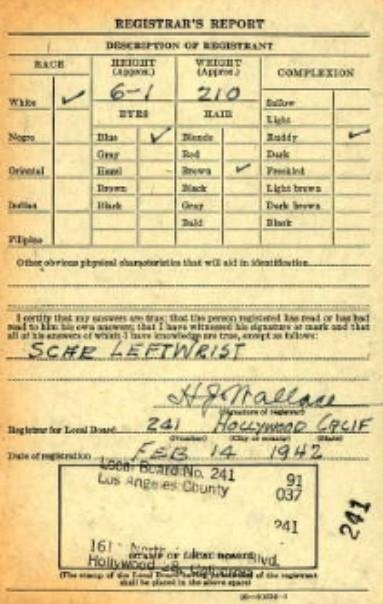 REGISTRAR'S REPORT
DESCRIPTION OF REGISTRANT
RACE
HEIGHT (Approx.)
WEIGHT (Approx.)
COMPLEXION
6-1
210
White ✓
EYES
HAIR
Sallow
Light
Negro
Blue ✓
Blonde
Ruddy ✓
Gray
Red
Dark
Oriental
Hazel
Brown ✓
Freckled
Brown
Black
Light brown
Indian
Black
Gray
Dark brown
Bald
Black
Filipino
Other obvious physical characteristics that will aid in identification
I certify that my answers are true; that the person registered has read or has had
read to him his own answers; that I have witnessed his signature or mark and that
all of his answers of which I have knowledge are true, except as follows:
SCAR LEFT WRIST
H J Wallace
(Signature of registrar)
Registrar for Local Board 241 HOLLYWOOD CALIF
(Number) (City or county) (State)
Date of registration FEB 14 1942
Local Board No. 241 91
Los Angeles County 037
241
161 North Blvd.
STAMP OF LOCAL BOARD
Hollywood 28, California
(The stamp of the Local Board having of the registrant
shall be placed in the above space)
241